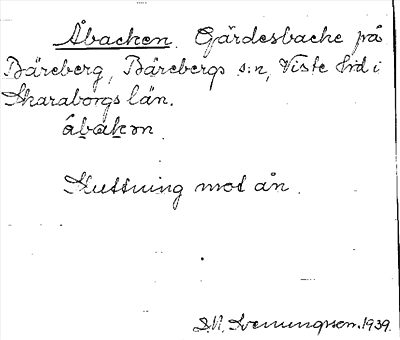 Åbacken. Gärdesbacke på
Båreberg, Bårebergs s:n, Viste hrd i
Skaraborgs län.
åbakən
Sluttning mot ån.
Svenungsson. 1939.